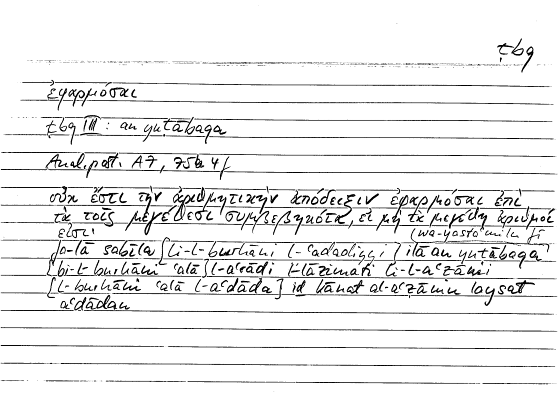 ṭbq
ἐφαρμόσαι
ṭbq III : an yuṭābaqa
Anal. post. A 7, 75b 4f
οὐκ ἔστι τὴν ἀριθμητικὴν ἀπόδειξιν ἐφαρμόσαι ἐπὶ
τὰ τοῖς μεγέθεσι συμβεβηκότα, εἰ μὴ τὰ μεγέθη ἀριθμοί
εἰσι
(wa-yastaʿmilu fī
fa-lā sabīla [li-l-burhāni l-ʿadadiyyi] ilā an yuṭābaqa
[bi-l-burhāni ʿalā] l-aʿrāḍi l-lāzimati li-l-aʿẓāmi
[l-burhāni ʿalā l-aʿdāda] id kānat al-aʿẓāmu laysat
aʿdādan